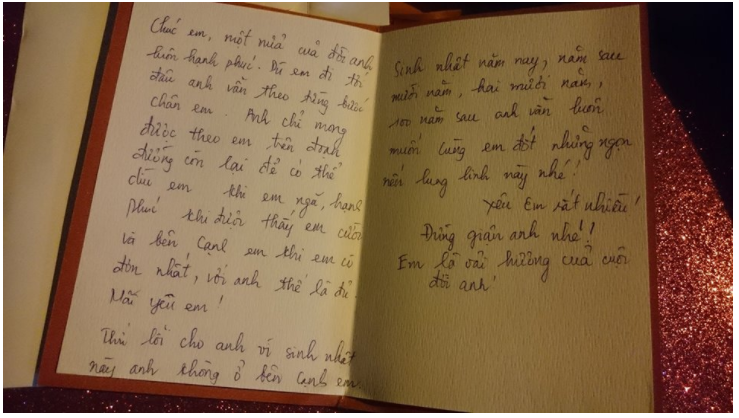 Chúc em, một nửa của đời anh
luôn hạnh phúc. Dù em đi tới
đâu anh vẫn theo từng bước
chân em. Anh chỉ mong
được theo em trên đoạn
đường còn lại để có thể
dìu em khi em ngã, hạnh
phúc khi được thấy em cười
và bên cạnh em khi em cô
đơn nhất, với anh thế là đủ.
Mãi yêu em!
Thứ lỗi cho anh vì sinh nhật
này anh không ở bên cạnh em
Sinh nhật năm nay, năm sau
mười năm, hai mười năm,
100 năm sau anh vẫn luôn
muốn cùng em đốt những ngọn
nến lung linh này nhé!
Yêu Em rất nhiều!
Đừng giận anh nhé!!
Em là vải hương của cuộc
đời anh!